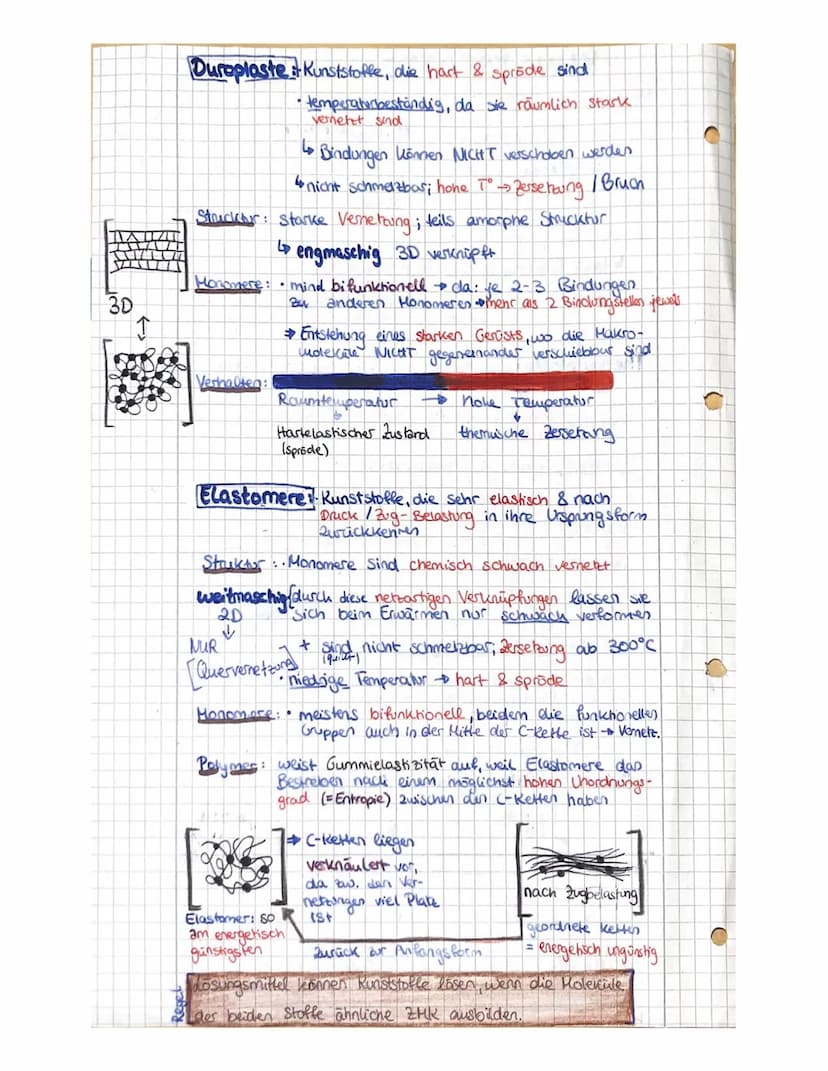 Duroplaste: • Kunststoffe, die hart & spröde sind
• temperaturbeständig, da sie räumlich stark
vernetzt sind
↳ Bindungen können NICHT verschoben werden
↳ nicht schmelzbar; hohe T° → Zersetzung / Bruch
Struktur: starke Vernetzung; teils amorphe Strucktur
↳ engmaschig 3D verknüpft
3D
Monomere: • mind bifunktionell → da: je 2-3 Bindungen
zu anderen Monomeren → mehr als 2 Bindungstellen jeweils
⇒ Entstehung eines starken Gerüsts, wo die Makro-
moleküle NICHT gegeneinander verschiebbar sind
Verhalten:
Raumtemperatur → hohe Temperatur
Hartelastischer Zustand thermische Zersetzung
(spröde)
Elastomere: • Kunststoffe, die sehr elastisch & nach
Druck / Zug-Belastung in ihre Ursprungsform
zurückkehren
Struktur: • Monomere sind chemisch schwach vernetzt
weitmaschig (durch diese netzartigen Verknüpfungen lassen sie
2D sich beim Erwärmen nur schwach verformen
↓
NUR + sind nicht schmelzbar; Zersetzung ab 300°C
[Quervernetzung]
• niedrige Temperatur → hart & spröde
Monomere: • meistens bifunktionell, beidem die funktionellen
Gruppen auch in der Mitte der C-Kette ist → Vernetz.
Polymer: weist Gummielastizität auf, weil Elastomere das
Bestreben nach einem möglichst hohen Unordnungs-
grad (= Entropie) zwischen den C-Ketten haben
⇒ C-Ketten liegen
verknäulert vor,
da zw. den Ver-
netzungen viel Platz
ist
nach Zugbelastung
Elastomer: so
am energetisch
günstigsten
zurück zur Anfangsform
geordnete Ketten
= energetisch ungünstig
Regel
Lösungsmittel können Kunststoffe lösen, wenn die Moleküle
der beiden Stoffe ähnliche ZMK ausbilden.